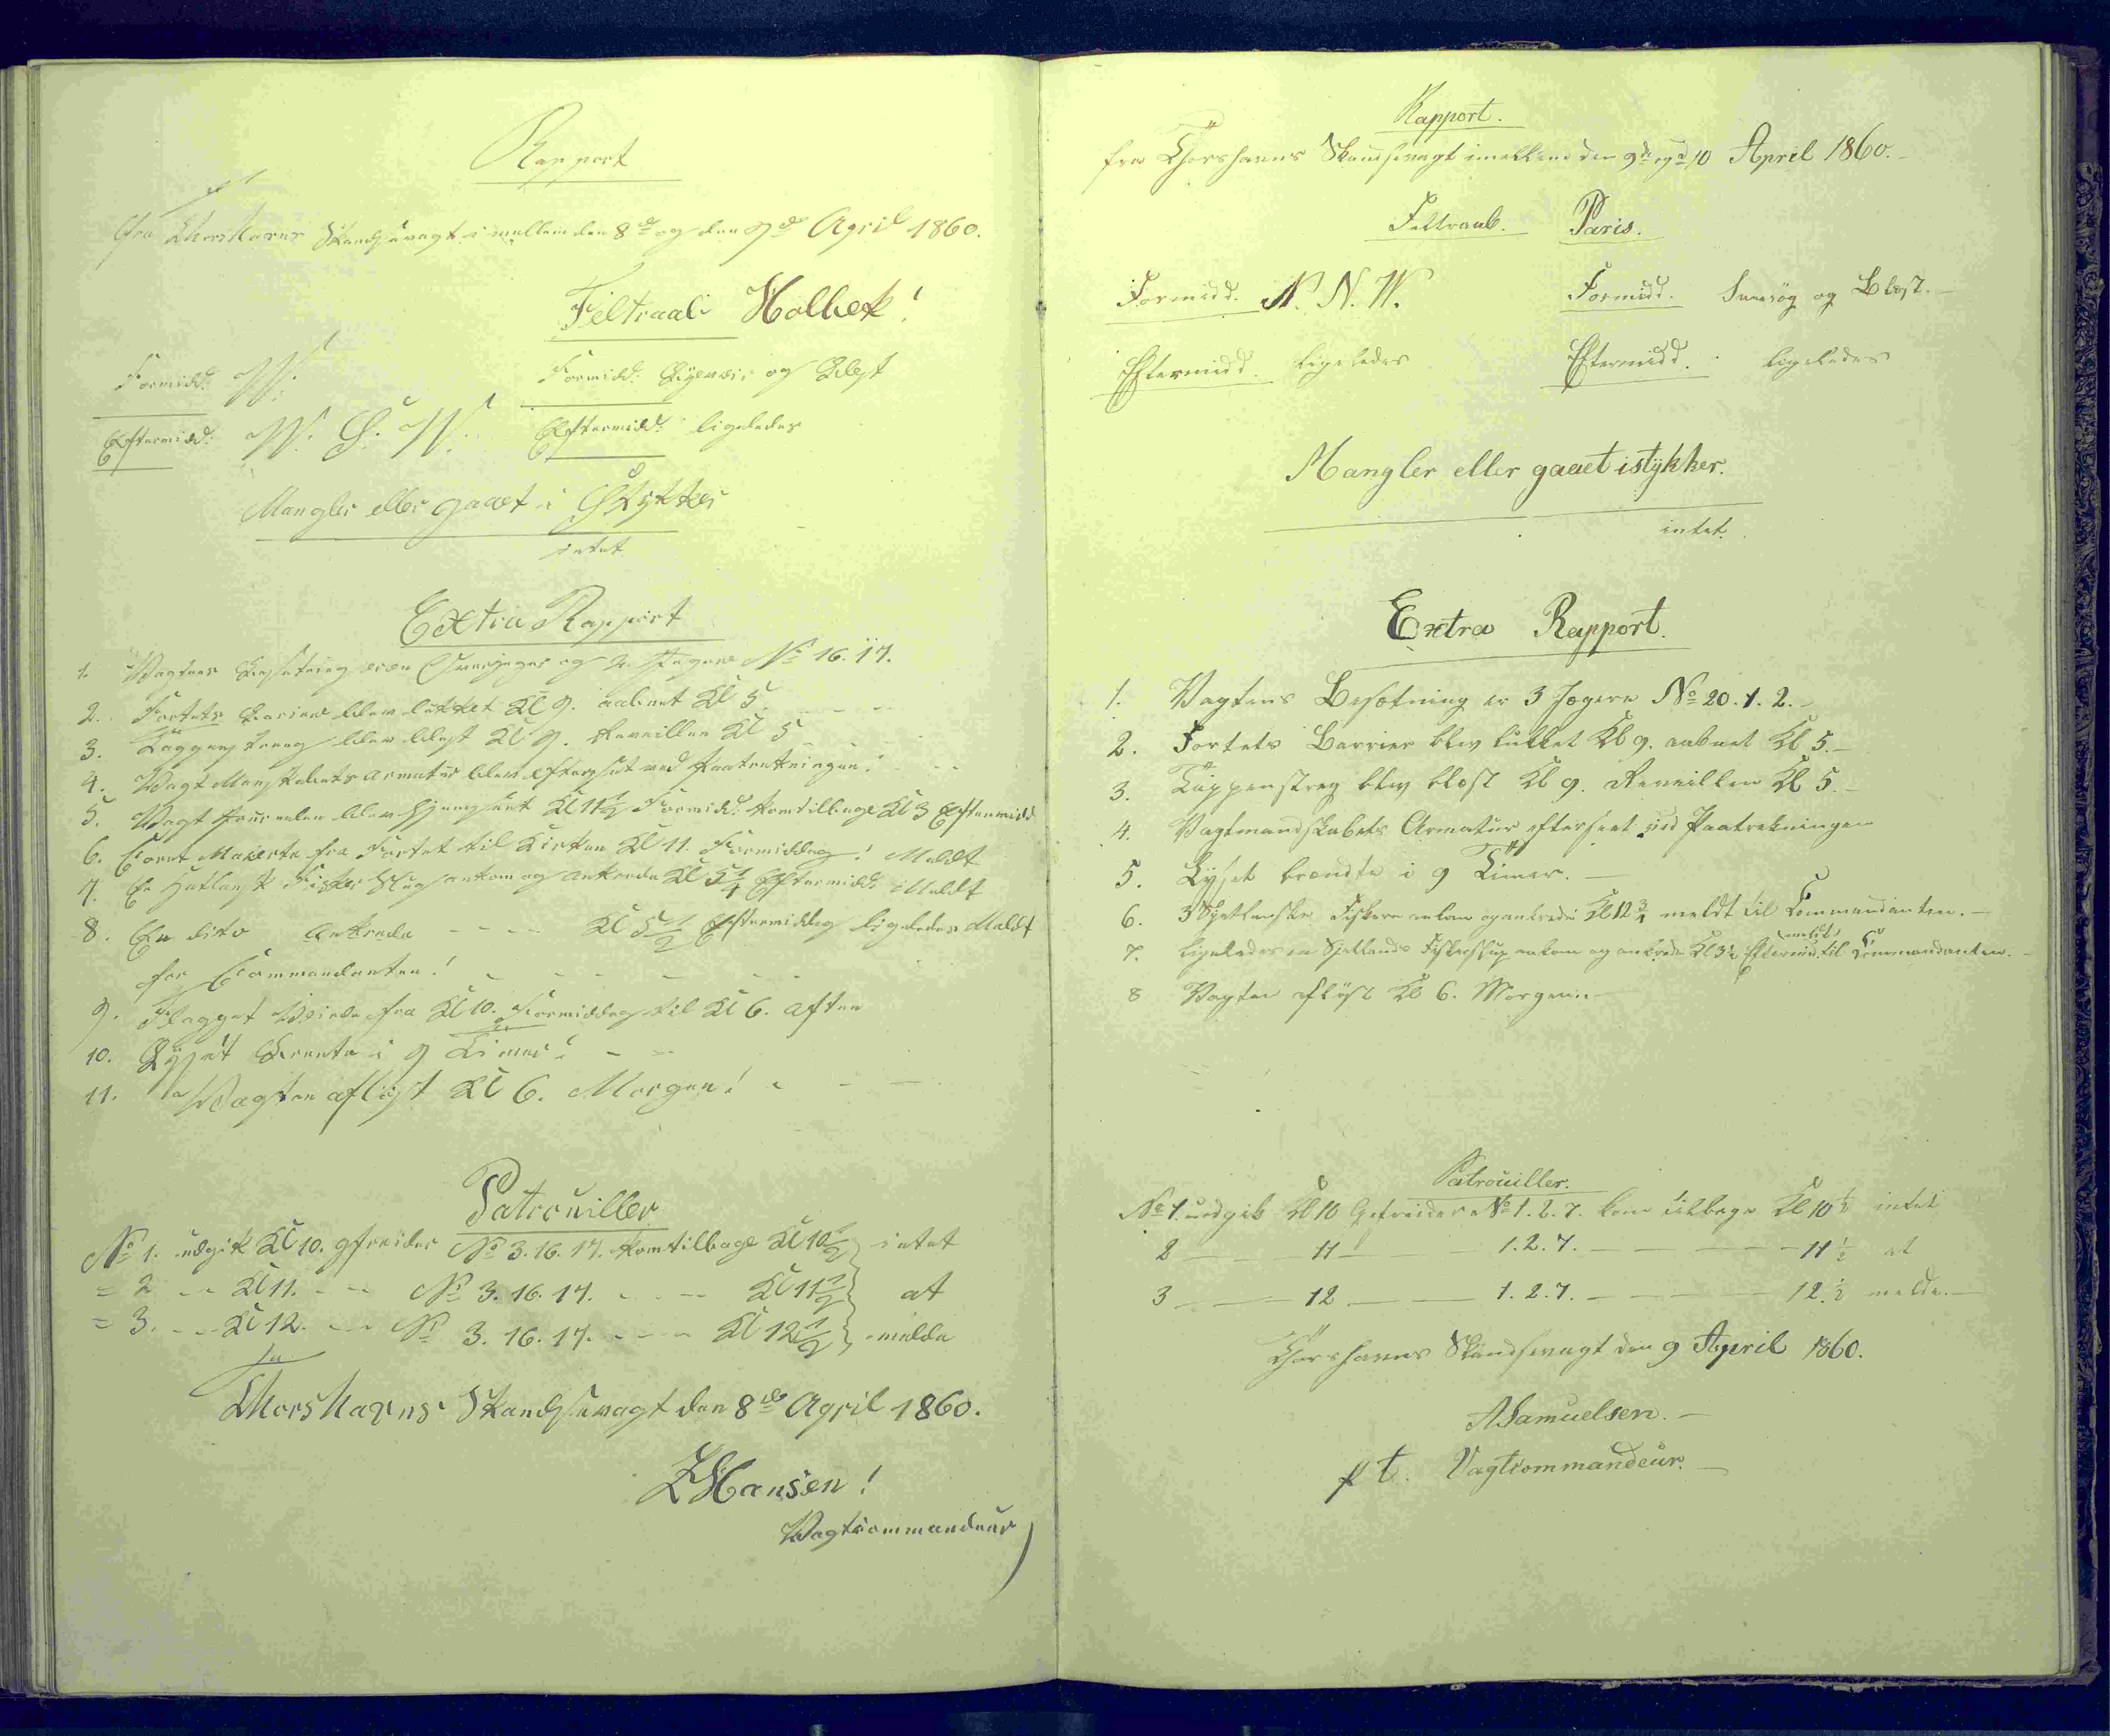 Rapport
fra Thorshavns Skandsevagt imellem den 8de og den 9de April 1860.
Feltraab Holbek!
Formidd: W. Formidd: Byevei og Blæst
Eftermidd: W. S. W. Eftermidd: ligeledes
Mangler eller gaaet i Stykker
intet
Extra Rapport
1. Vagtens Besætning er en og 2 Jægere No 16. 17.
2. Fortets Barriere blev lukket Kl 9. aabnet Kl 5.
3. Tappenstreg blev blæst Kl 9. Reveillen Kl 5
4. Vagt Mandskabets Armatur blev efterseet ved Paatrækningen!
5. Vagt Journalen blev Kl 11½ Formidd: kom tilbage Kl 3 Eftermidd
6. Corpset Marcerte fra Fortet til Kirken Kl 11. Formiddag! Meldt
7. En Hetlansk Fisker Slup ankom og ankrede Kl 5¼ Eftermidd: Meldt
8. En dito Ankrede - - - - Kl 5½ Eftermiddag ligeledes Meldt
for Commandanten!
9. Flagget Veiede fra Kl 10. Formiddag til Kl 6. Aften
10. Lyset Brente i 9 Timer!
11. Vagten afløst Kl 6. Morgen!
Patrouiller
No 1. udgik Kl 10. gefreider No 3. 16. 17. kom tilbage Kl 10½ intet
= 2 - - Kl 11. - - No 3. 16. 17. - - - Kl 11½ at
= 3. - - Kl 12. - - No 3. 16. 17. - - - Kl 12½ melde
Thorshavns Skandsevagt den 8de April 1860.
Hansen!
Vagtcommandeur
Rapport.
fra Thorshavns Skandsevagt imellem den 9de og d 10 April 1860.
Feltraab. Paris.
Formidd. N. N. W. Formidd. Sneeføg og Blæst.
Eftermidd. ligeledes Eftermidd. ligeledes
Mangler eller gaaet istykker.
intet.
Extra Rapport.
1. Vagtens Besætning er 3 Jægere No 20. 1. 2.
2. Fortets Barrier blev lukket Kl 9. aabnet Kl 5.
3. Tappenstreg blev blæst Kl 9. Reveillen Kl 5.
4. Vagtmandskabets Armatur efterseet ved Paatrækningen
5. Lyset brændte i 9 Timer.
6. 3 Hjetlanske Fiskere ankom og ankrede Kl 12¾ meldt til Commandanten.
7. ligeledes en Hjetlands Fiskerslup ankom og ankrede Kl 3½ Eftermid. meldt til Commandanten.
8 Vagten afløst Kl 6. Morgen.
Patrouiller.
No 1. udgik Kl 10 Gefreider No 1. 2. 7. kom tilbage Kl 10½ intet
2 - - 11 - - 1. 2. 7. - - - 11½ at
3 - - 12 - - 1. 2. 7. - - - 12.½ melde.
Thorshavns Skandsevagt den 9 April 1860.
ASamuelsen.
p t. Vagtcommandeur.